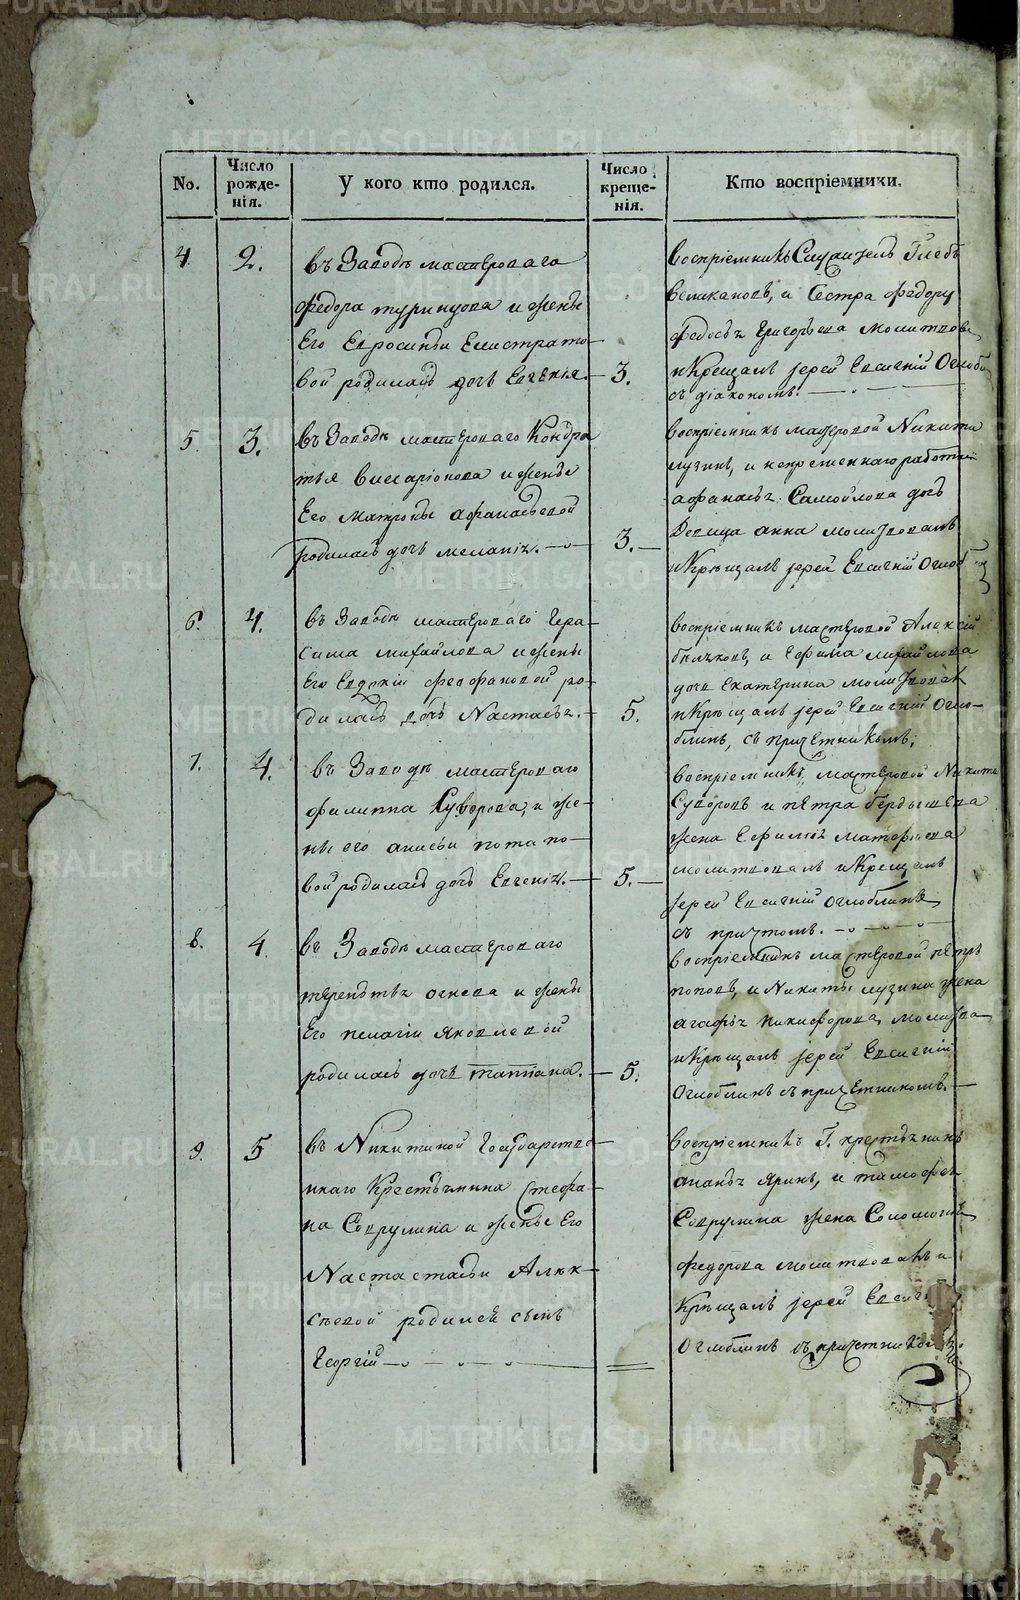 No.
Число рожде- нія.
У кого кто родился.
Число креще- нія.
Кто воспріемники.
4
2.
въ Заводѣ мастероваго
Федора туринцова и жены
Его Евросиньи Елистрато-
вой родилась дочь Евгенія.
3.
воспріемникъ Служитель Глебъ
великановъ, и Сестра Федору
Федосья Григорьева молитвова
и Крещалъ іерей Евсигній Оглобл
съ діакономъ.
5.
3.
въ Заводѣ мастероваго Кондра
тья виссаріонова и жены
Его матроны афанасьевой
родилась дочь меланія.
3.
воспріемникъ мастеровой Никита
лузинъ, и непременнаго работни
афанасья Самойлова дочь
Девица анна молитвовалъ
и Крещалъ іерей Евсигній Оглоб
6.
4.
въ Заводѣ мастероваго Гера-
сима михайлова и жены
Его Евдокіи феофановой ро-
дилась дочь Настасья.
5.
воспріемникъ мастеровой Алексей
бычковъ, и Ефима михайлова
дочь Екатерина молитвовал
и Крещалъ іерей Евсигній Огло-
блинъ, съ причетникомъ.
7.
4.
въ Заводѣ мастероваго
филиппа Суворова, и же-
ны его анисьи потапо-
вой родилась дочь Евгенія.
5.
воспріемникъ, мастеровой Никита
Суворовъ и петра бердышева
жена Ефимія матфиева
молитвовалъ и Крещалъ
іерей Евсигній оглоблинъ
съ причтомъ.
8.
4.
въ Заводѣ мастероваго
терентья огнева и жены
Его пелагіи яковлевой
родилась дочь татіана.
5.
воспріемникъ мастеровой петръ
поповъ, и Никиты лузина жена
агафья никифорова, молитва
и Крещалъ іерей Евсигній
Оглоблинъ съ причетникомъ.
9.
5
въ Никитиной Государстве-
ннаго Крестьянина Стефа-
на Соврулина и жены Его
Настастасьи Алек-
сѣевой родился сынъ
Георгій
воспріемникъ Г. крестьянинъ
ананья яринъ, и тимофея
Соврулина жена Соломонія
федорова молитвовалъ и
Крещалъ іерей Евсиг
Оглоблинъ съ причетником